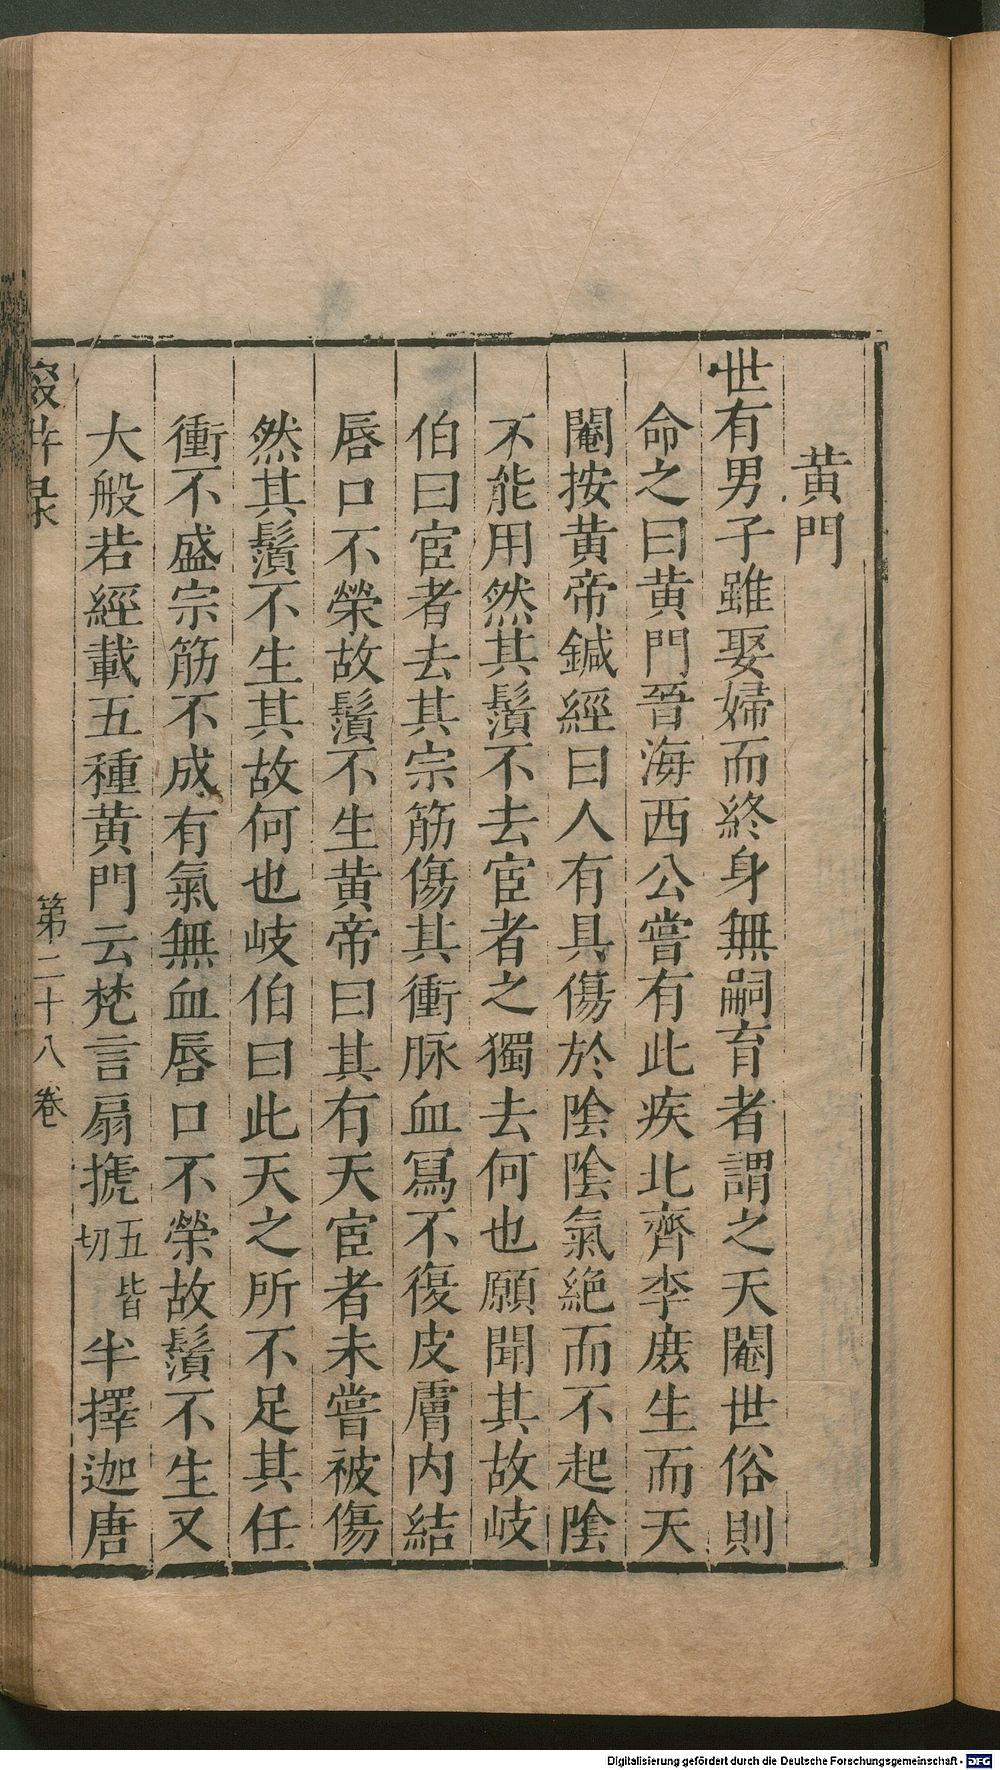 黄門
世有男子雖娶婦而終身無嗣育者謂之天閹世俗則
命之曰黄門晉海西公嘗有此疾北齊李庻生而天
閹按黄帝鍼經曰人有具傷於陰陰氣絶而不起陰
不能用然其鬚不去宦者之獨去何也願聞其故岐
伯曰宦者去其宗筋傷其衝脉血寫不復皮膚内結
唇口不榮故鬚不生黄帝曰其有天宦者未嘗被傷
然其鬚不生其故何也岐伯曰此天之所不足其任
衝不盛宗筋不成有氣無血唇口不榮故鬚不生又
大般若經載五種黄門云梵言扇搋五皆切半擇迦唐
輟畊録 第二十八卷
Digitalisierung gefördert durch die Deutsche Forschungsgemeinschaft - DFG